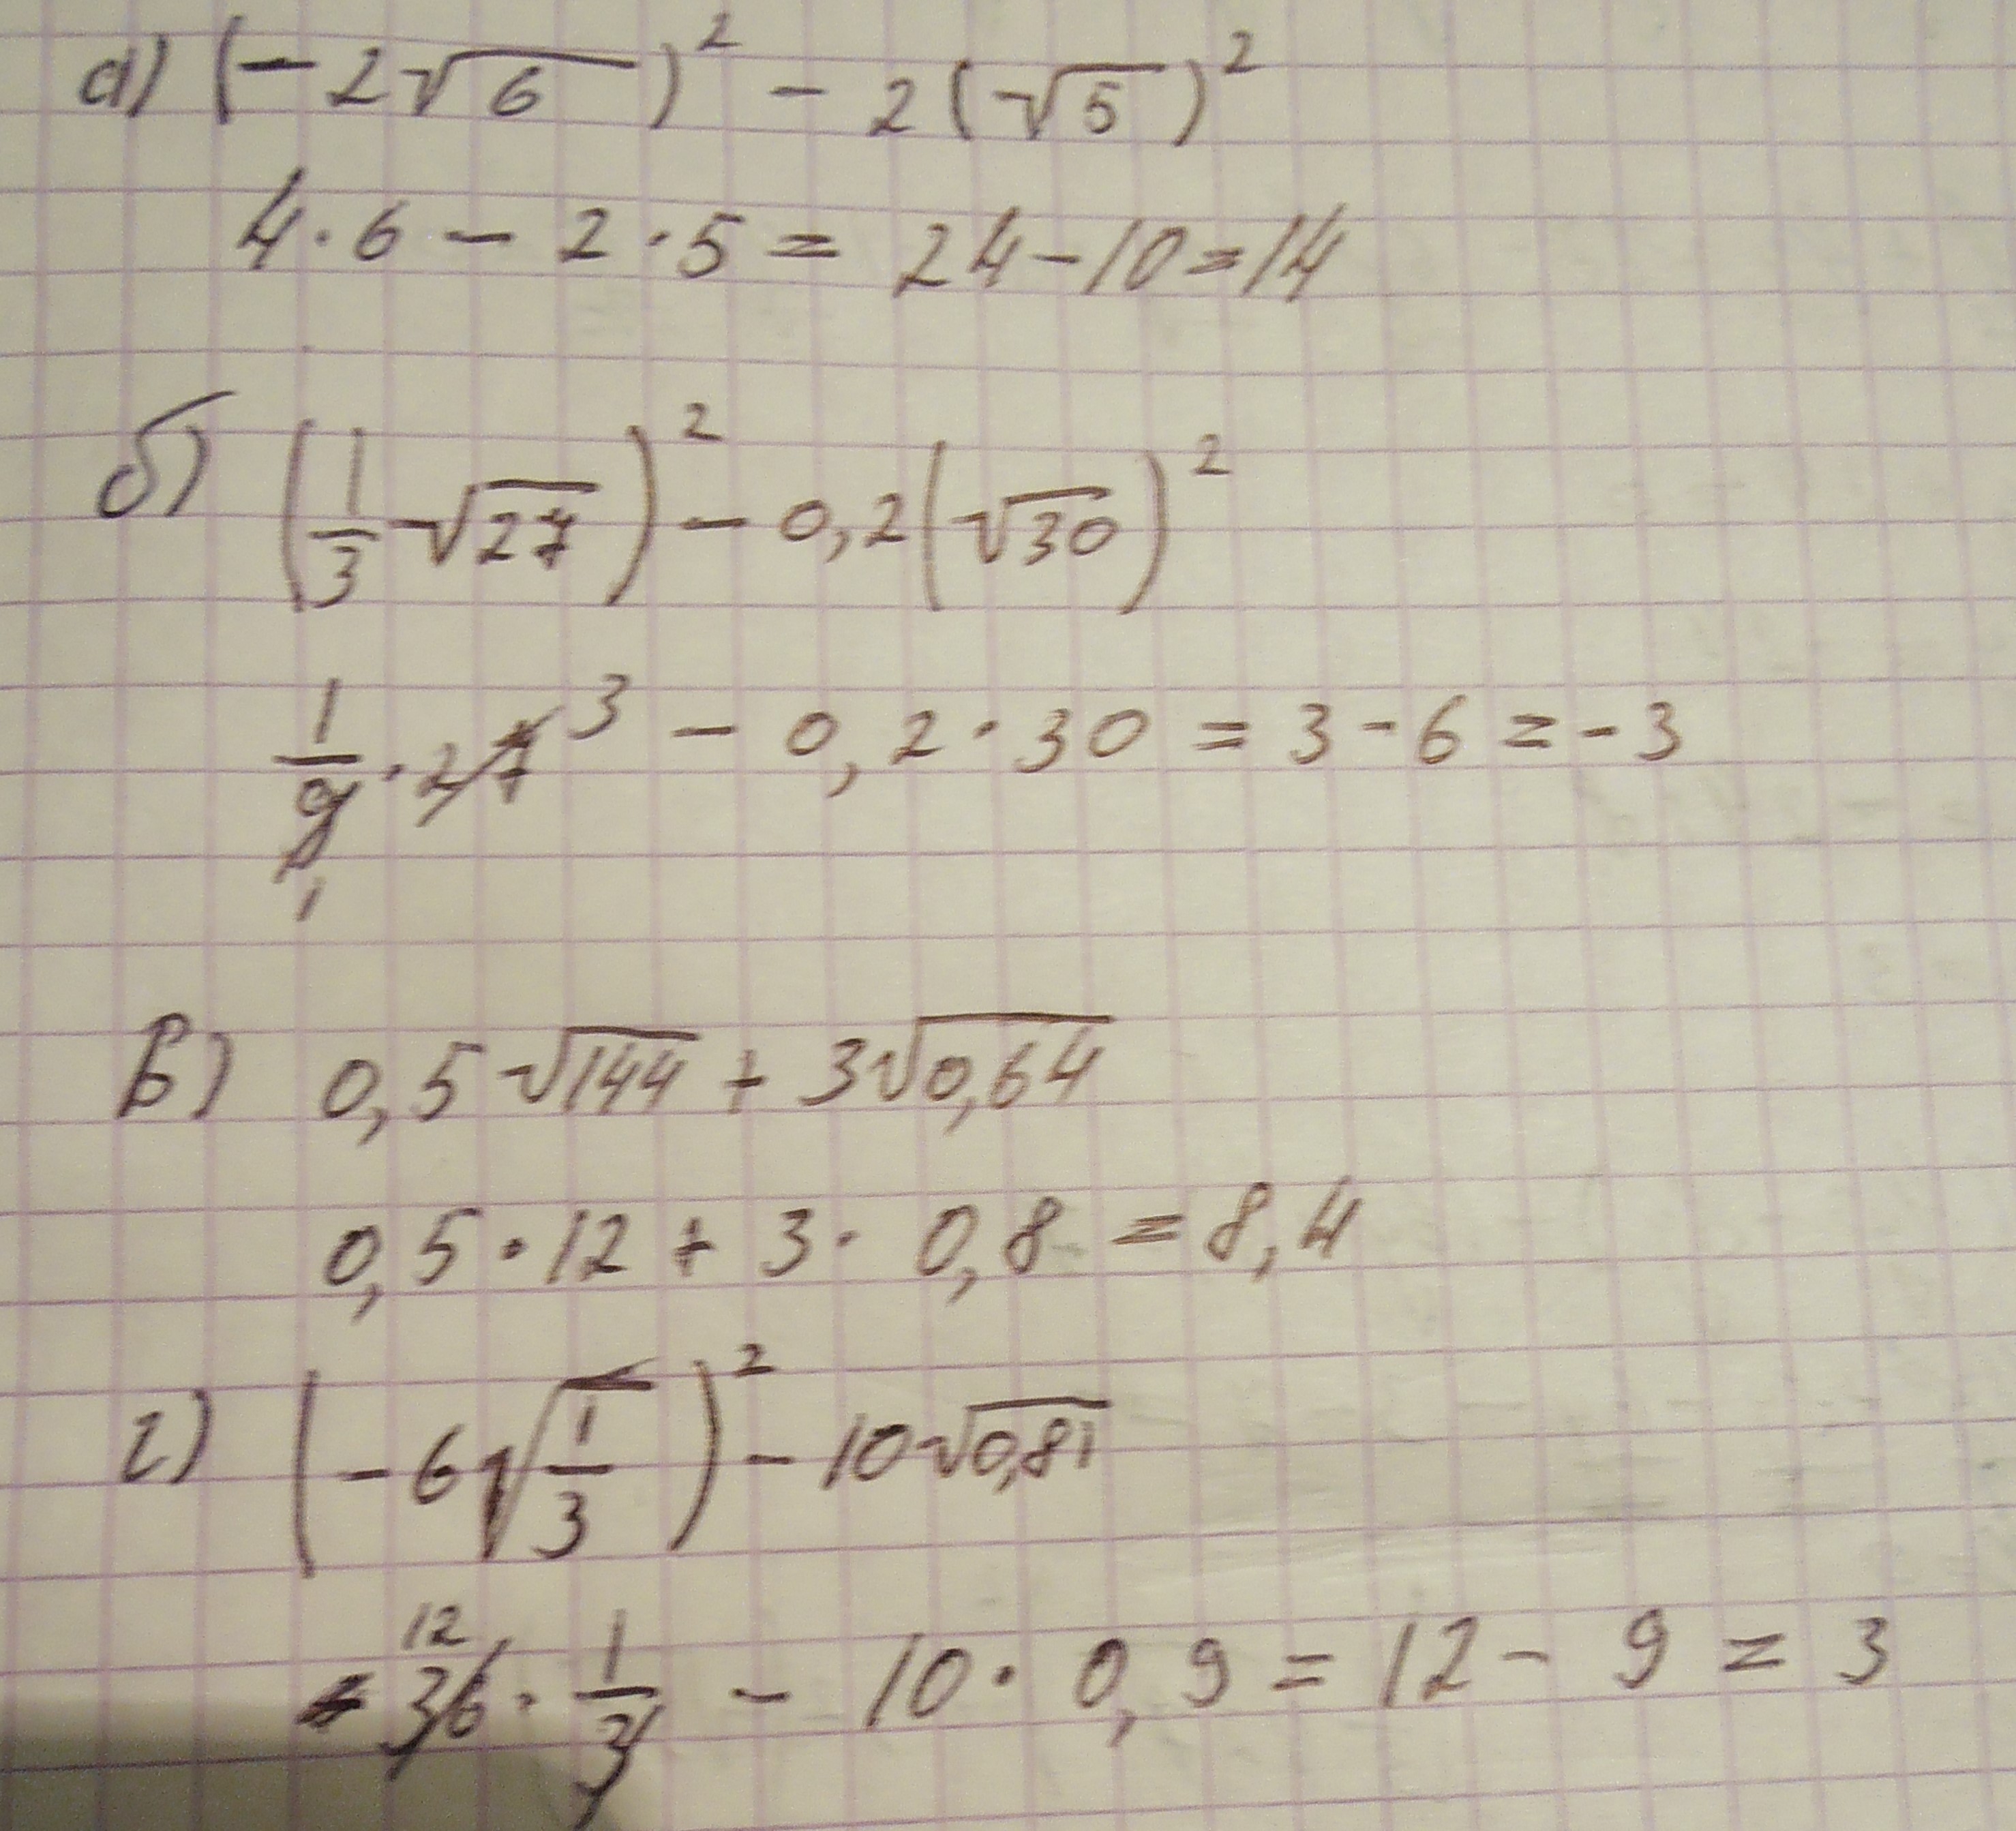 а) (-2√6)² - 2(√5)²
4·6 - 2·5 = 24-10=14
б) (1/3 √27)² - 0,2(√30)²
1/9 · 27 ³ - 0,2·30 = 3-6 = -3
1
в) 0,5√144 + 3√0,64
0,5·12 + 3·0,8 = 8,4
г) (-6√(1/3))² - 10√0,81
12
36 · 1/3 - 10·0,9 = 12 - 9 = 3